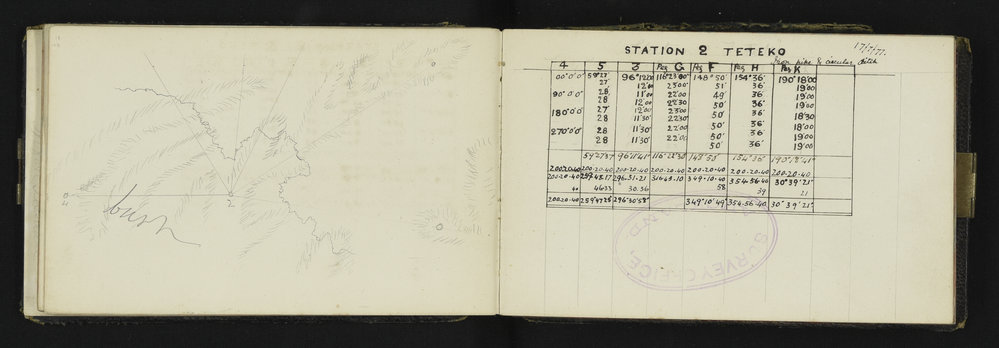 bush
2
17/7/77.
STATION 2 TETEKO
Iron pike & circular ditch
4 5 3 Peg G Peg F Peg H Peg K
00°0'0" 59°27' 96°12'00 116°23'00" 148°50' 154°36' 190°18'00
27' 12'00 23'00 51' 36' 19'00
90°0'0" 28' 11'00 22'00 49' 36' 19'00
28 12'00 22'30 50' 36' 19'00
180°0'0" 27' 12'00 23'00 50' 36' 18'30
28 11'30 22'30 50' 36' 18'00
270°0'0" 28 11'30 22'00 50' 36' 19'00
28 11'30 22'00 50' 36' 19'00
59°27'37 96°11'41" 116°22'30 148°50' 154°36' 190°18'41"
200.20.40 200.20.40 200.20.40 200.20.40 200.20.40 200.20.40 200.20.40
200.20.40 259.48.17 296.32.21 316.43.10 349.10.40 354.56.40 30°39'21"
40 46.33 30.36 58 39 21
200.20.40 259°47'25" 296°30'58" 349°10'49" 354.56.40 30°39'21"
SURVEY OFFICE